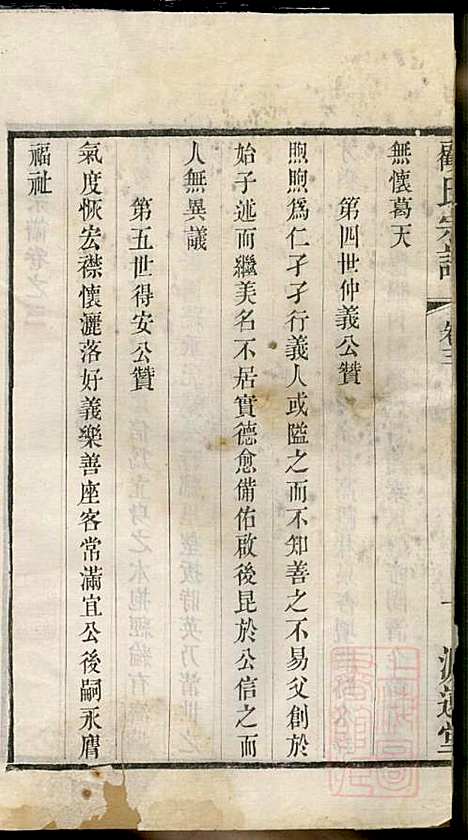 無懷葛天
第四世仲義公贊
煦煦爲仁孑孑行義人或隘之而不知善之不易父創於
始子述而繼美名不居實德愈備佑啟後昆於公信之而
人無異議
第五世得安公贊
氣度恢宏襟懷灑落好義樂善座客常滿宜公後嗣永膺
福祉